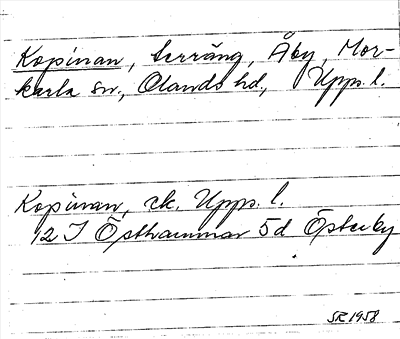 Kopinan, terräng, Åby, Mor-
karla sn., Olands hd., Upps. l.
Kopinan, ek. Upps. l.
12 I Östhammar 5d Österby
SR 1958